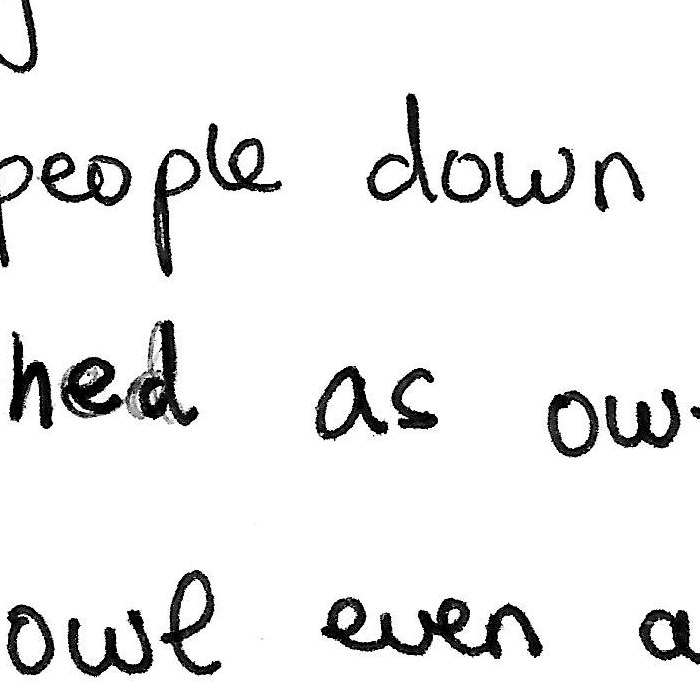 people down
hed as ow
owl even a